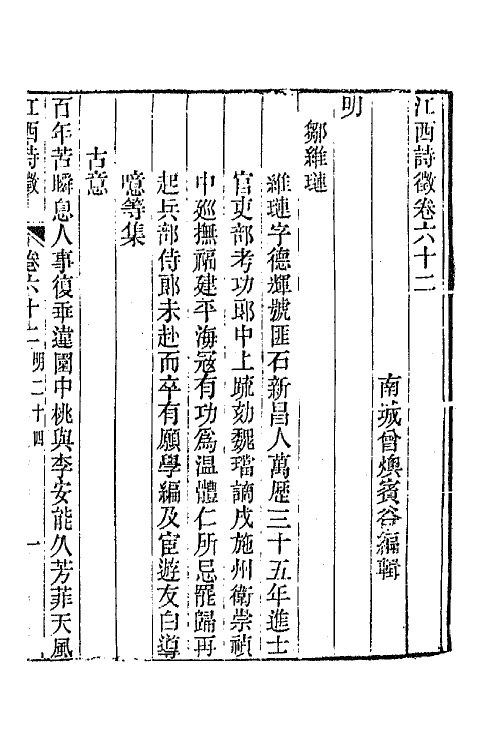 江西詩徵卷六十二
南城曾燠賓谷編輯
明
鄒維璉
維璉字德輝號匪石新昌人萬歷三十五年進士
官吏部考功郎中上疏劾魏璫謫戍施州衛崇禎
中廵撫福建平海寇有功爲温體仁所忌罷歸再
起兵部侍郎未赴而卒有願學編及宦遊友白導
噫等集
古意
百年苦瞬息人事復乖違園中桃與李安能久芳菲天風
江西詩徵 卷六十二 明二十四 一